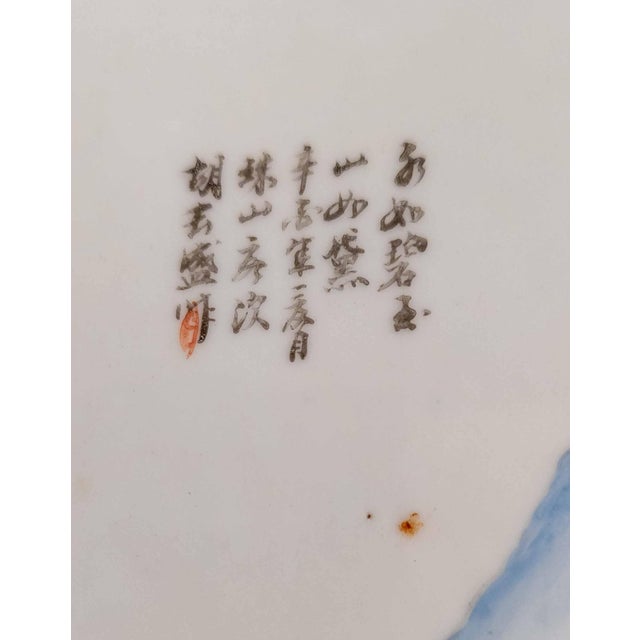 水如碧玉
山如黛
辛酉年夏月
珠山客次
胡盛作